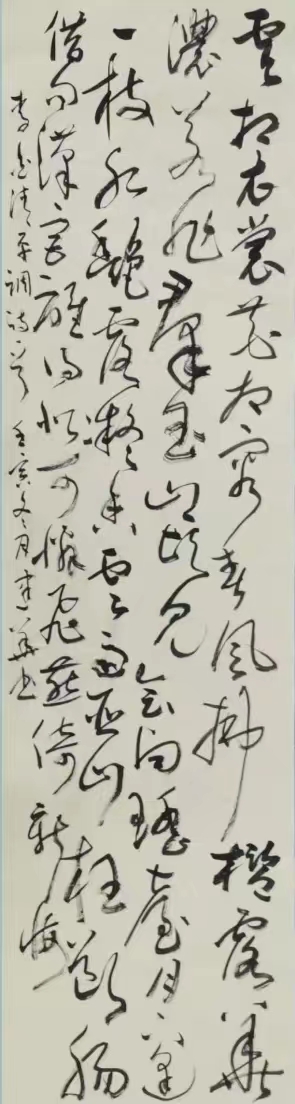 雲想衣裳花想容春風拂檻露華
濃若非群玉山頭見會向瑤臺月下逢
一枝紅艷露凝香雲雨巫山枉斷腸
借問漢宮誰得似可憐飛燕倚新妝
李白清平調詩二首 壬寅冬月建華书